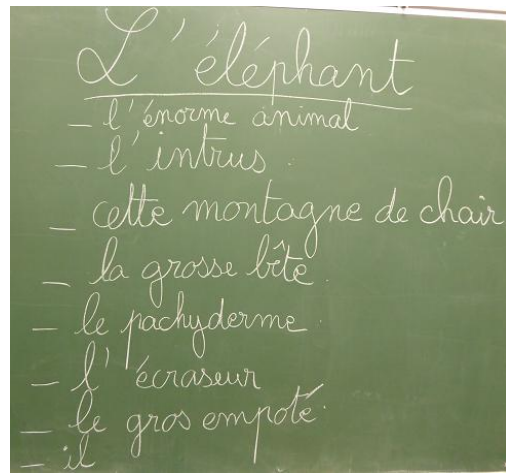 L'éléphant
_ l'énorme animal
_ l'intrus.
_ cette montagne de chair
_ la grosse bête.
_ le pachyderme.
_ l'écraseur
_ le gros empoté.
_ il